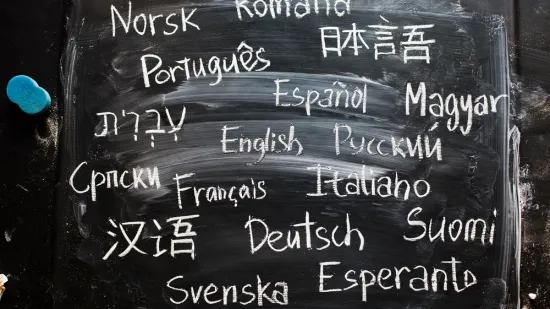 Norsk
Română
日本言語
Português
Español
Magyar
עִבְרִית
English
Русский
Српски
Français
Italiano
汉语
Deutsch
Suomi
Svenska
Esperanto